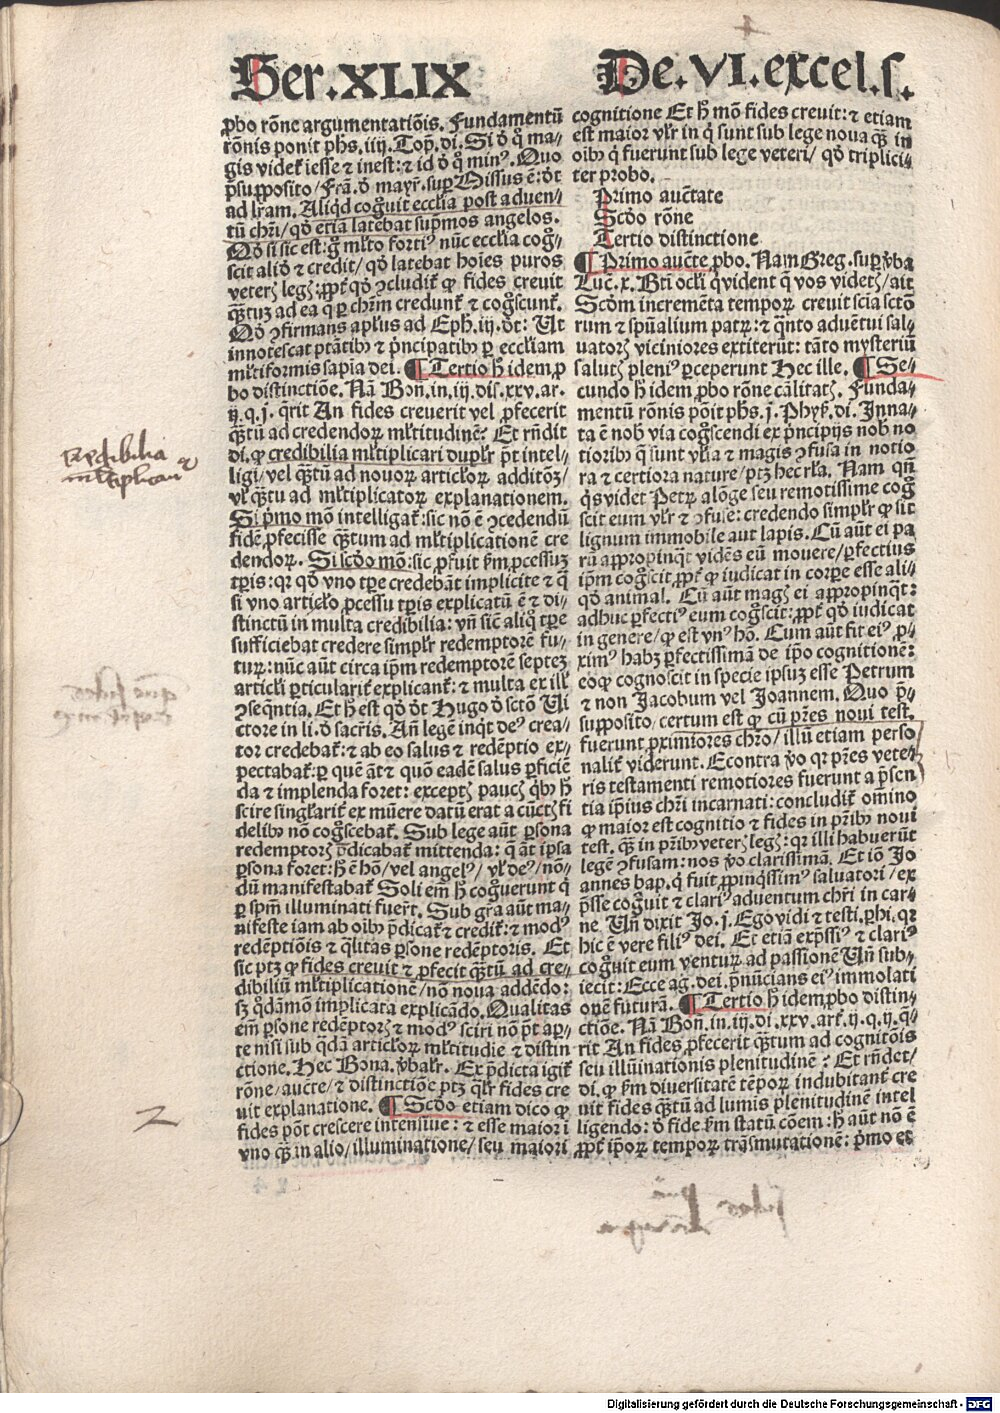 Ser.XLIX
De.VI.excel.s.
ꝓbo rōne argumentatiōis. Fundamentū
rōnis ponit phs. iiij. Top̄. di. Si ꝺ q̊ ma-
gis videt᷑ iesse ⁊ inest: ⁊ id ꝺ q̊ min⁹. Quo
p̄supposito/ Frā. ꝺ mayr̄. super Missus ē: ꝺt
ad lr̄am. Aliqd cogͦuit eccl̄ia post aduen-
tū chr̄i/ qꝺ etiā latebat sup̄mos angelos.
Qꝺ si sic est: gͦ ml̄to forti⁹ nūc eccl̄ia cogͦ-
scit aliꝺ ⁊ credit/ qꝺ latebat hoīes puros
veterꝭ legꝭ: ꝓpt̄ qꝺ ꝯcludit᷑ ꝙ fides creuit
qͣꝫtuꝫ ad ea q̄ ꝑ chr̄m credunt᷑ ⁊ cogͦscunt᷑.
Qꝺ ꝯfirmans apl̄us ad Eph. iij. ꝺt: Ut
innotescat ptātibꝰ ⁊ p̄ncipatibꝰ ꝑ eccl̄iam
ml̄tiformis sapīa dei. ¶ Tertio h̄ idem ꝓ
bo distinctiōe. Nā Bon. in. iij. dis. xxv. ar.
ij. q. j. q̄rit An fides creuerit vel ꝓfecerit
qͣꝫtū ad credendoꝝ ml̄titudinē: Et rn̄dit
di. ꝙ credibilia ml̄tiplicari duplr̄ pn̄t intel-
ligi/ vel qͣꝫtū ad nouoꝝ articl̄oꝝ additōꝫ/
vl̄ qͣꝫtū ad ml̄tiplicatoꝝ explanationem.
Si p̄mo mō intelligat᷑: sic nō ē ꝯcedendū
fidē ꝓfecisse qͣꝫtum ad ml̄tiplicationē cre
dendoꝝ. Si scd̄o mō: sic ꝓfuit ẜm ꝓcessuꝫ
tꝑis: qꝛ qꝺ vno tꝑe credebāt implicite ⁊ qͣ
si vno articl̄o ꝓcessu tꝑis explicatū ē ⁊ di-
stinctū in multa credibilia: vn̄ sic̄ aliqͦ tꝑe
sufficiebat credere simplr̄ redemptorē fu-
tuꝝ: nūc aūt circa ip̄m redemptorē septeꝫ
articl̄i ꝑticularit᷑ explicant᷑: ⁊ multa ex ill̄
ꝯseqn̄tia. Et h̄ est qꝺ ꝺt Hugo ꝺ scto Ui
ctore in li. ꝺ sacr̄is. An̄ legē inqt de⁹ crea-
tor credebat᷑: ⁊ ab eo salus ⁊ redēptio ex-
pectabat᷑: ꝑ quē āt ⁊ quō eadē salus ꝑficiē
da ⁊ implenda foret: exceptꝭ paucꝭ qͥbꝰ h̄
scire singl̄arit᷑ ex mūere datū erat a cūctꝭ fi
delibꝰ nō cogͦscebat᷑. Sub lege aūt ꝑsona
redemptorꝭ p̄dicabat᷑ mittenda: q̄ āt ipsa
ꝑsona foret: h̄ ē hō/ vel angel⁹/ vl̄ de⁹/ nō-
dū manifestabat᷑ Soli em̄ h̄ cogͦuerunt qͥ
ꝑ sp̄m illuminati fuer̄t. Sub gr̄a aūt ma-
nifeste iam ab oībꝰ p̄dicat᷑ ⁊ credit᷑: ⁊ mod⁹
redēptiōis ⁊ qͣlitas ꝑsone redēptoris. Et
sic ptꝫ ꝙ fides creuit ⁊ ꝓfecit qͣꝫtū ad cre-
dibiliū ml̄tiplicationē/ nō noua addēdo:
sꝫ qͦdāmō implicata explicādo. Qualitas
em̄ ꝑsone redēptorꝭ ⁊ mod⁹ sciri nō pōt aꝑ-
te nisi sub qͣdā articl̄oꝝ ml̄titudīe ⁊ distin
ctione. Hec Bona. v̄balr̄. Ex p̄dicta igit᷑
rōne/ aucte/ ⁊ distinctiōe ptꝫ qͣlr̄ fides cre
uit explanatione. ¶ Scd̄o etiam dico ꝙ
fides pōt crescere intensiue: ⁊ esse maior ī
vno qͣꝫ in alio/ illuminatione/ seu maiori
cognitione Et h̄ mō fides creuit: ⁊ etiam
est maior vlr̄ in qͥ sunt sub lege noua qͣꝫ in
oībꝰ qͥ fuerunt sub lege veteri/ qꝺ triplici-
ter probo.
Primo auctate
Scd̄o rōne
Tertio distinctione
¶ Primo aucte ꝓbo. Nam Greg. sup v̄ba
Luc. x. Bti ocl̄i qͥ vident q̄ vos videtꝭ/ ait
Scd̄m incremēta tempoꝝ creuit sciā sctō
rum ⁊ spūalium patꝝ: ⁊ qͣnto aduētui sal-
uatorꝭ viciniores extiterūt: tāto mysteriū
salutꝭ pleni⁹ ꝑceperunt Hec ille. ¶ Se-
cundo h̄ idem ꝓbo rōne cālitatꝭ. Funda-
mentū rōnis pōit phs. j. Phyẜ. di. Inna-
ta ē nob̄ via cogͦscendi ex p̄ncipijs nob̄ no
tioribꝰ q̄ sunt vl̄ia ⁊ magis ꝯfusa in notio
ra ⁊ certiora nature/ ptꝫ hec rl̄a. Nam qn̄
qͥs videt Petꝝ alōge seu remotissime cogͦ
scit eum vlr̄ ⁊ ꝯfuse: credendo simplr̄ ꝙ sit
lignum immobile aut lapis. Cū aūt ei pa
rū appropinqt vidēs eū mouere/ ꝑfectius
ip̄m cogͦscit, ꝓpt̄ ꝙ iudicat in corꝑe esse ali-
qꝺ animal. Cū aūt magꝭ ei appropinqt:
adhuc ꝑfecti⁹ eum cogͦscit: ꝓpt̄ qꝺ iudicat
in genere/ ꝙ est vn⁹ hō. Cum aūt fit ei⁹ ꝓ-
xim⁹ habꝫ ꝑfectissimā de ip̄o cognitionē:
eoꝙ cognoscit in specie ipsuꝫ esse Petrum
⁊ non Jacobum vel Joannem. Quo p̄-
supposito/ certum est ꝙ cū pr̄es noui test.
fuerunt ꝓximiores chr̄o/ illū etiam perso
nalit᷑ viderunt. Econtra v̄o qꝛ pr̄es vete-
ris testamenti remotiores fuerunt a p̄sen
tia ip̄ius chr̄i incarnati: concludit᷑ om̄ino
ꝙ maior est cognitio ⁊ fides in pr̄ibꝰ noui
test. qͣꝫ in pr̄ibꝰ veterꝭ legꝭ: qꝛ illi habuerūt
legē ꝯfusam: nos v̄o clarissimā. Et iō Jo
annes bap. qͥ fuit ꝓpinqͥssim⁹ saluatori/ ex
p̄sse cogͦuit ⁊ clari⁹ aduentum chr̄i in car-
ne. Un̄ dixit Jo. j. Ego vidi ⁊ testi. ꝑhi. qꝛ
hic ē vere fili⁹ dei. Et etiā exp̄ssi⁹ ⁊ clari⁹
cogͦuit eum ventuꝝ ad passionē Un̄ sub-
iecit: Ecce ag. dei. p̄nūcians ei⁹ immolati
onē futurā. ¶ Tertio h̄ idem ꝓbo distin-
ctiōe. Nā Bon. in. iij. di. xxv. art᷑. ij. q. ij. q̄-
rit An fides ꝓfecerit qͣꝫtum ad cognitōis
seu illuīnationis plenitudinē: Et rn̄det/
di. ꝙ ẜm diuersitatē tēpoꝝ indubitant᷑ cre
uit fides qͣꝫtū ad lumis plenitudinē intel
ligendo: ꝺ fide ẜm statū cōem: h̄ aūt nō ē
ꝓpt̄ ip̄oꝝ tempoꝝ trāsmutationē: p̄mo ec
credibilia
multiplicari
2
Digitalisierung gefördert durch die Deutsche Forschungsgemeinschaft - DFG